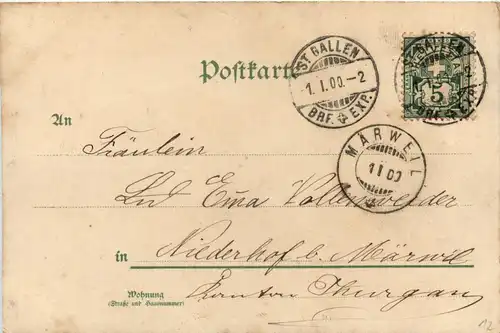 Postkarte
ST. GALLEN
1.I.00.-2
BRF. EXP.
ST. GALLEN
5
BRF. EXP.
MÄRWEIL
1 I 00
An
Fräulein
Emma Vollenweider
in Niederhof b. Märwil
Wohnung
(Straße und Hausnummer)
Kanton Thurgau